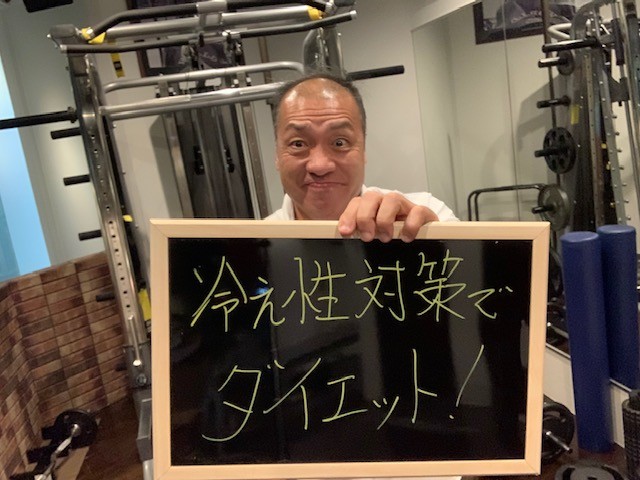 冷え性対策で
ダイエット!